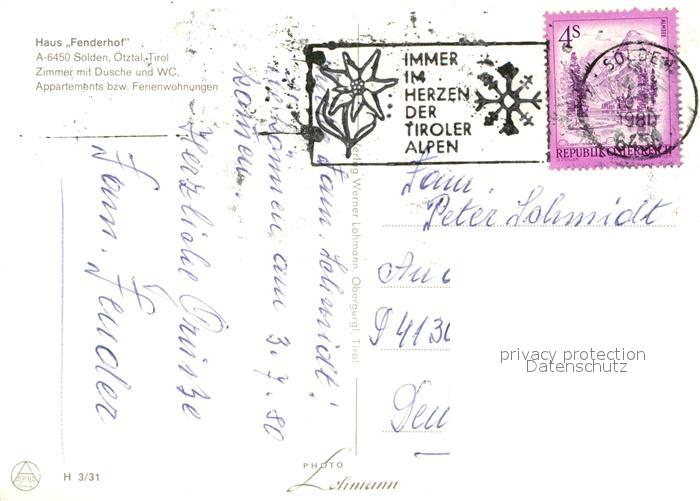 Haus „Fenderhof"
A-6450 Sölden, Ötztal, Tirol
Zimmer mit Dusche und WC,
Appartements bzw. Ferienwohnungen
IMMER
IM
HERZEN
DER
TIROLER
ALPEN
4S
ALMSEE
REPUBLIK ÖSTERREICH
SÖLDEN
1980
6450
Fam.
Peter Schmidt
Au
D 4130
Fam. Schmidt!
können am 3.7.80
kommen.
Herzliche Grüsse
Fam. Fender
Verlag Werner Lohmann, Obergurgl, Tirol
privacy protection
Datenschutz
H 3/31
PHOTO
Lohmann